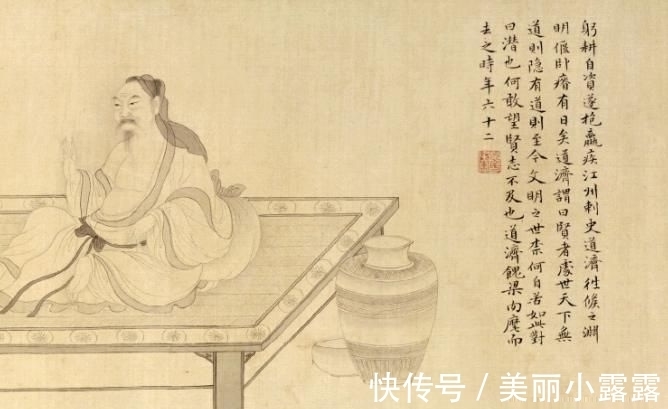 躬耕自資遂抱羸疾江州刺史道濟往候之淵
明偃卧瘠有日矣道濟謂曰賢者處世天下無
道則隐有道則至今文明之世柰何自苦如此對
曰潜也何敢望賢志不及也道濟餽梁肉麾而
去之時年六十二
快传号 / 美丽小露露